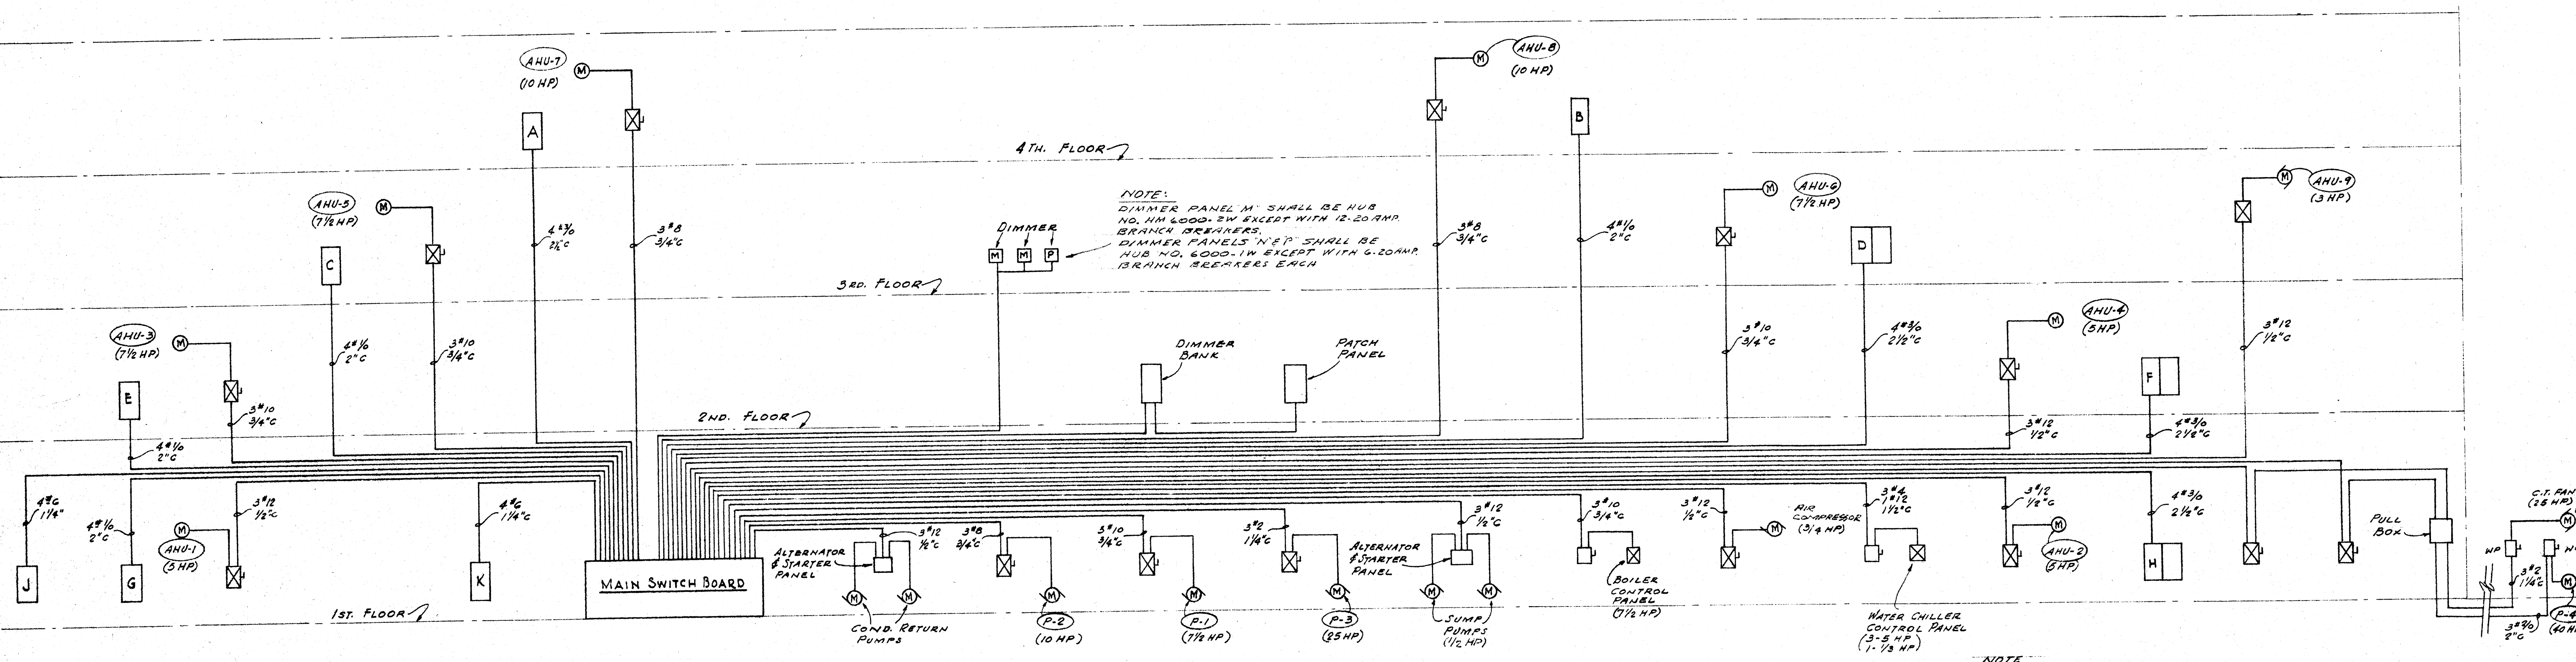 AHU-7
(10 HP)
M
A
AHU-8
(10 HP)
M
B
4TH. FLOOR
AHU-5
(7½ HP)
M
C
4#3/0
2½"C
3#8
3/4"C
NOTE:
DIMMER PANEL "M" SHALL BE HUB
NO. HM 6000-2W EXCEPT WITH 12-20 AMP.
BRANCH BREAKERS.
DIMMER PANELS "N & P" SHALL BE
HUB NO. 6000-1W EXCEPT WITH 6-20 AMP.
BRANCH BREAKERS EACH
DIMMER
M
M
P
3#8
3/4"C
4#1/0
2"C
M
AHU-6
(7½ HP)
D
M
AHU-9
(3 HP)
3RD. FLOOR
AHU-3
(7½ HP)
M
E
4#1/0
2"C
3#10
3/4"C
DIMMER
BANK
PATCH
PANEL
3#10
3/4"C
4#3/0
2½"C
M
AHU-4
(5HP)
F
3#12
½"C
3#10
3/4"C
4#1/0
2"C
2ND. FLOOR
3#12
½"C
4#3/0
2½"C
4#6
1¼"
4#1/0
2"C
3#12
½"C
4#6
1¼"C
M
AHU-1
(5 HP)
J
G
K
MAIN SWITCH BOARD
1ST. FLOOR
ALTERNATOR
& STARTER
PANEL
3#12
½"C
M
M
COND. RETURN
PUMPS
3#8
3/4"C
M
P-2
(10 HP)
3#10
3/4"C
M
P-1
(7½ HP)
3#2
1¼"C
M
P-3
(25 HP)
ALTERNATOR
& STARTER
PANEL
3#12
½"C
M
M
SUMP
PUMPS
(1/2 HP)
3#10
3/4"C
BOILER
CONTROL
PANEL
(7½ HP)
3#12
½"C
M
AIR
COMPRESSOR
(3/4 HP)
3#4
1#12
1½"C
WATER CHILLER
CONTROL PANEL
(3-5 HP)
1-1/3 HP)
3#12
½"C
M
AHU-2
(5 HP)
4#3/0
2½"C
H
PULL
BOX
C.T. FAN
(25 HP)
M
WP
3#2
1¼"C
M
P-4
(40 H
3#2/0
2"C
NOTE